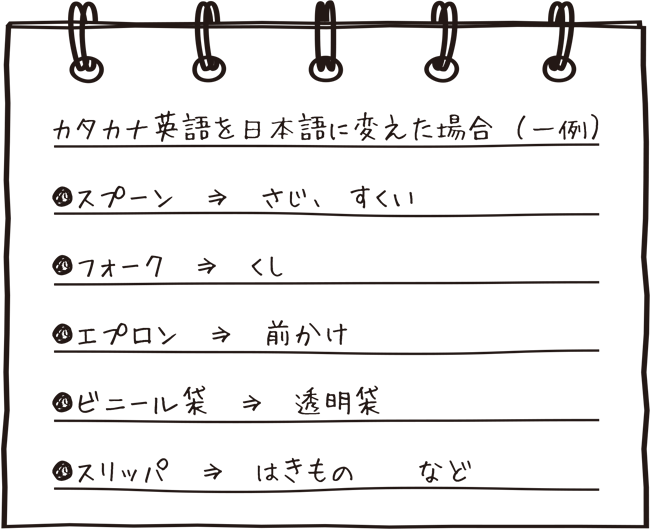 カタカナ英語を日本語に変えた場合（一例）
●スプーン ⇒ さじ、すくい
●フォーク ⇒ くし
●エプロン ⇒ 前かけ
●ビニール袋 ⇒ 透明袋
●スリッパ ⇒ はきもの など